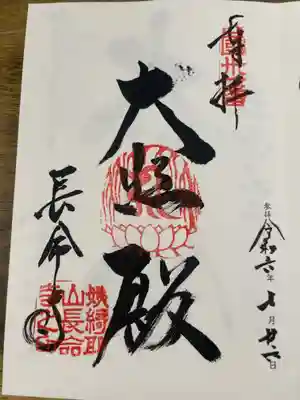 奉拝
参拝 令和六年十月廿六日
大悲殿
長命寺
姨綺耶
山長命
寺之印